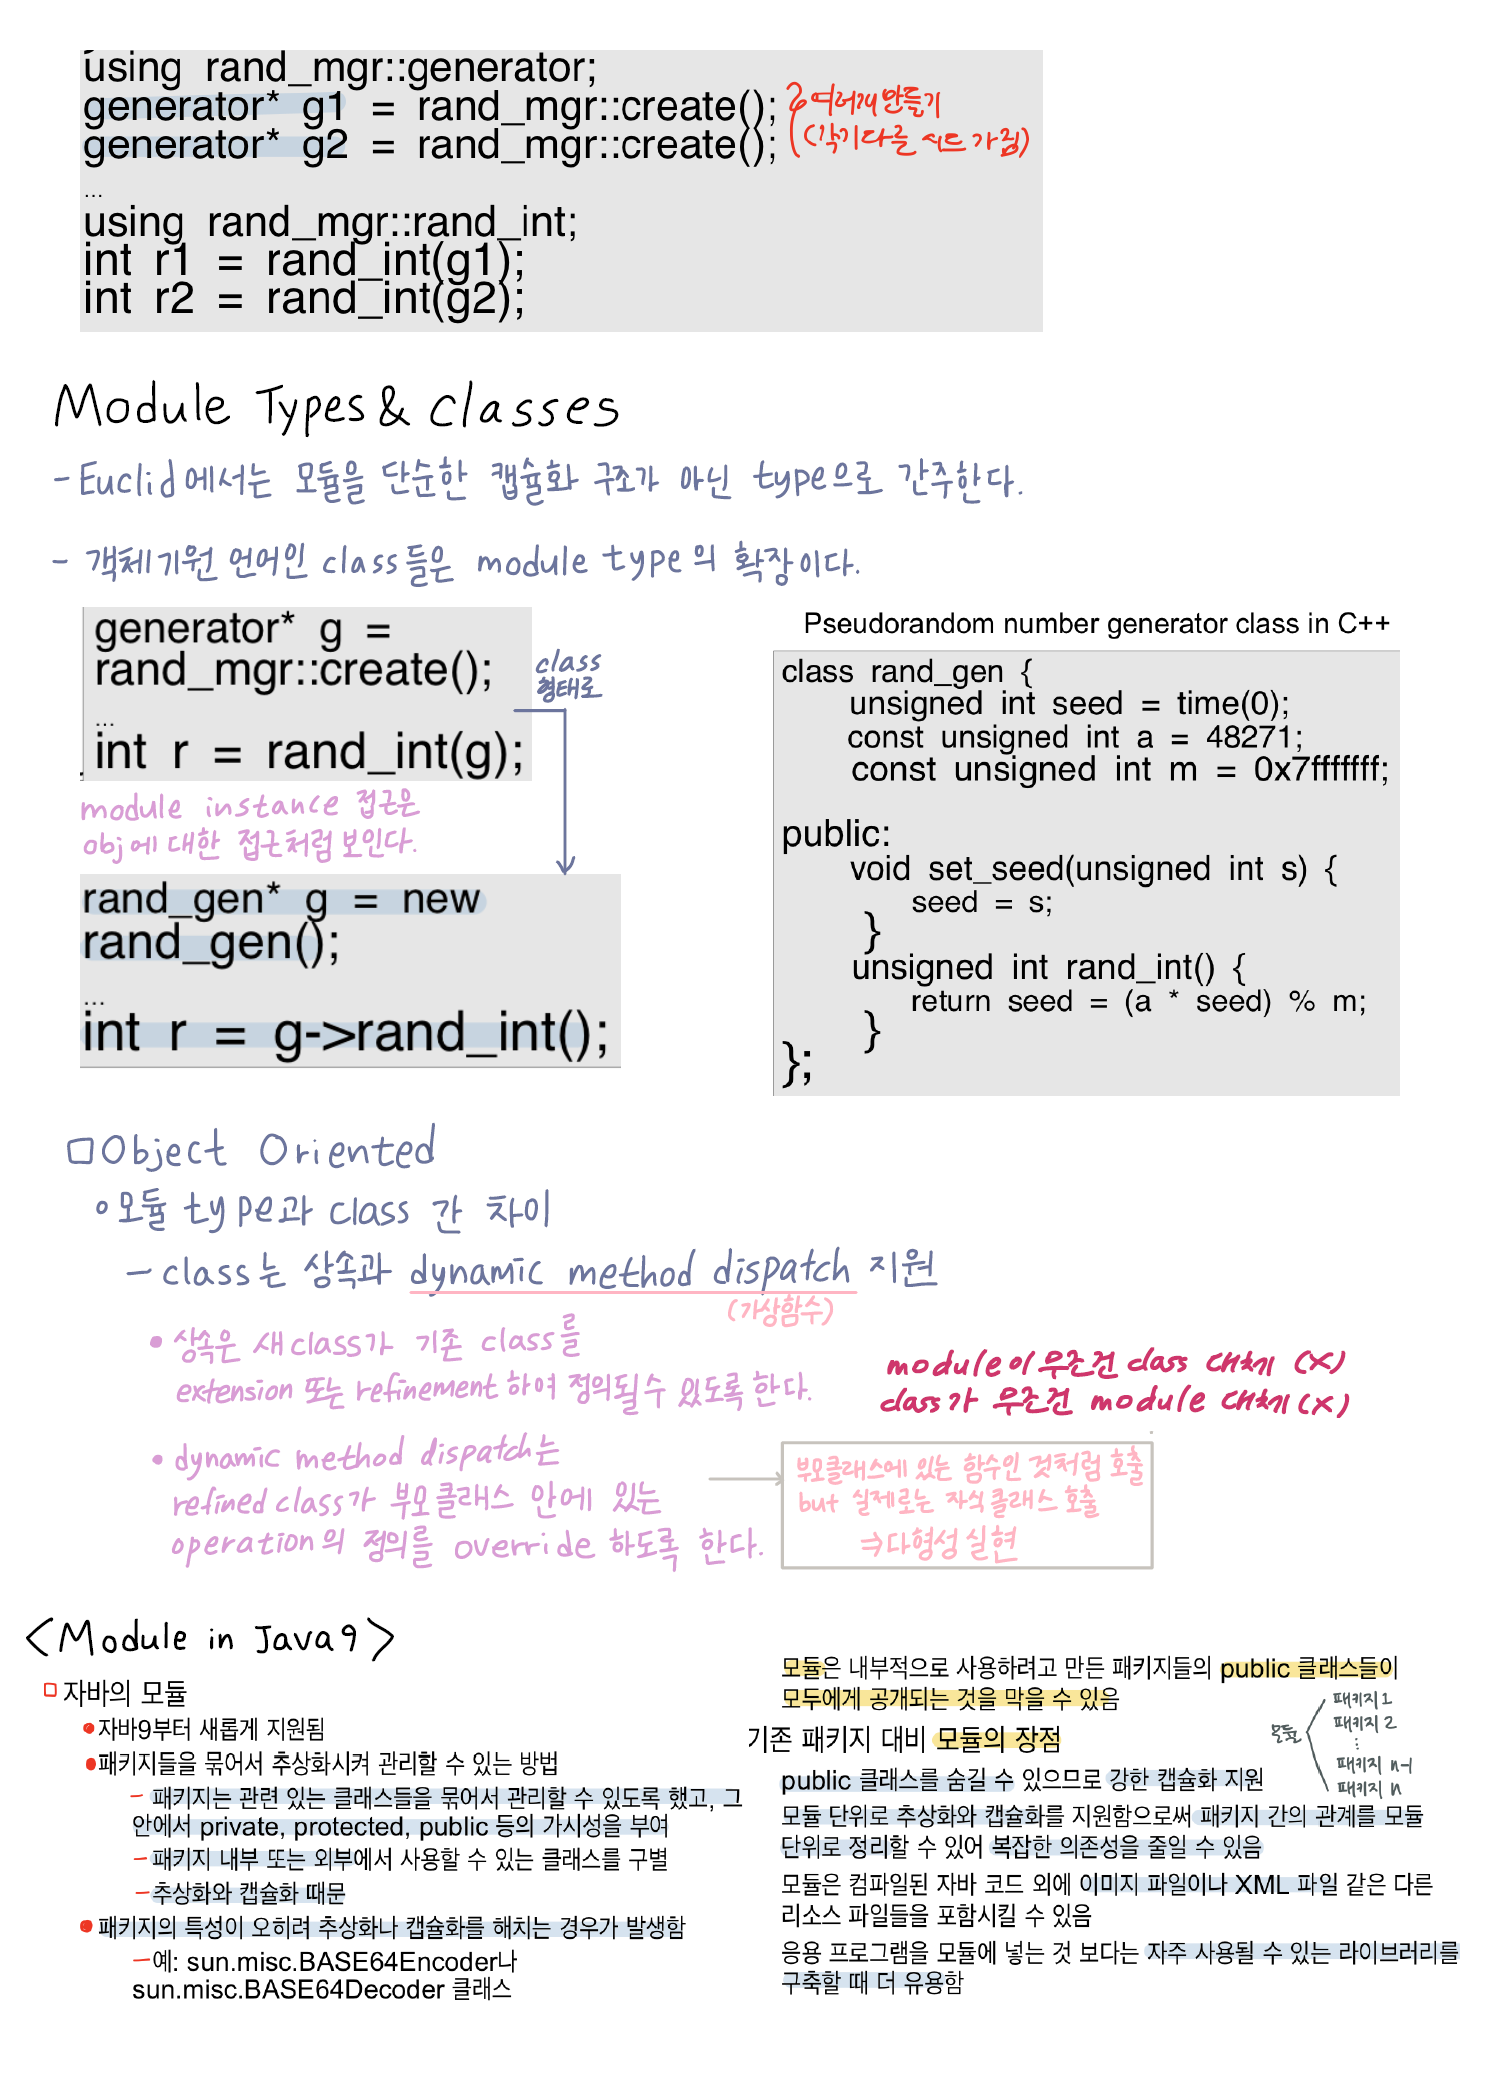 using rand_mgr::generator;
generator* g1 = rand_mgr::create();
generator* g2 = rand_mgr::create();
여러개 만들기
(각기 다른 시드 가짐)
...
using rand_mgr::rand_int;
int r1 = rand_int(g1);
int r2 = rand_int(g2);
Module Types & classes
- Euclid에서는 모듈을 단순한 캡슐화 구조가 아닌 type으로 간주한다.
- 객체기원 언어인 class들은 module type의 확장이다.
generator* g =
rand_mgr::create();
...
int r = rand_int(g);
class
형태로
module instance 접근은
obj에 대한 접근처럼 보인다.
rand_gen* g = new
rand_gen();
...
int r = g->rand_int();
Pseudorandom number generator class in C++
class rand_gen {
unsigned int seed = time(0);
const unsigned int a = 48271;
const unsigned int m = 0x7fffffff;
public:
void set_seed(unsigned int s) {
seed = s;
}
unsigned int rand_int() {
return seed = (a * seed) % m;
}
};
□Object Oriented
∘모듈 type과 class 간 차이
- class는 상속과 dynamic method dispatch 지원
(가상함수)
• 상속은 새 class가 기존 class를
extension 또는 refinement 하여 정의될 수 있도록 한다.
module이 무조건 class 대체 (X)
class가 무조건 module 대체 (X)
• dynamic method dispatch는
refined class가 부모 클래스 안에 있는
operation의 정의를 override 하도록 한다.
부모클래스에 있는 함수인 것처럼 호출
but 실제로는 자식 클래스 호출
⇒ 다형성 실현
<Module in Java9>
□ 자바의 모듈
• 자바9부터 새롭게 지원됨
• 패키지들을 묶어서 추상화시켜 관리할 수 있는 방법
- 패키지는 관련 있는 클래스들을 묶어서 관리할 수 있도록 했고, 그
안에서 private, protected, public 등의 가시성을 부여
- 패키지 내부 또는 외부에서 사용할 수 있는 클래스를 구별
- 추상화와 캡슐화 때문
• 패키지의 특성이 오히려 추상화나 캡슐화를 해치는 경우가 발생함
- 예: sun.misc.BASE64Encoder나
sun.misc.BASE64Decoder 클래스
모듈은 내부적으로 사용하려고 만든 패키지들의 public 클래스들이
모두에게 공개되는 것을 막을 수 있음
기존 패키지 대비 모듈의 장점
모듈
패키지 1
패키지 2
⋮
패키지 n-1
패키지 n
public 클래스를 숨길 수 있으므로 강한 캡슐화 지원
모듈 단위로 추상화와 캡슐화를 지원함으로써 패키지 간의 관계를 모듈
단위로 정리할 수 있어 복잡한 의존성을 줄일 수 있음
모듈은 컴파일된 자바 코드 외에 이미지 파일이나 XML 파일 같은 다른
리소스 파일들을 포함시킬 수 있음
응용 프로그램을 모듈에 넣는 것 보다는 자주 사용될 수 있는 라이브러리를
구축할 때 더 유용함